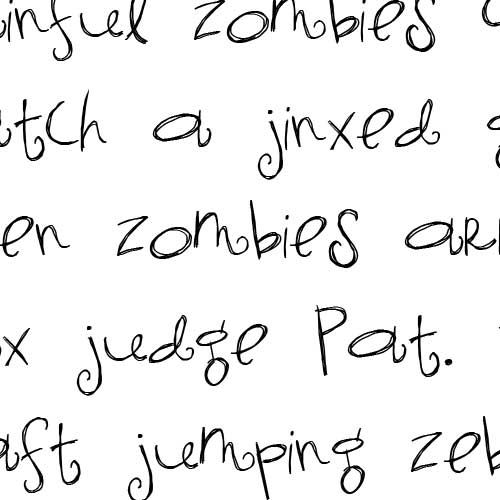 inful zombies
atch a jinxed g
en zombies arr
ox judge Pat.
aft jumping zeb